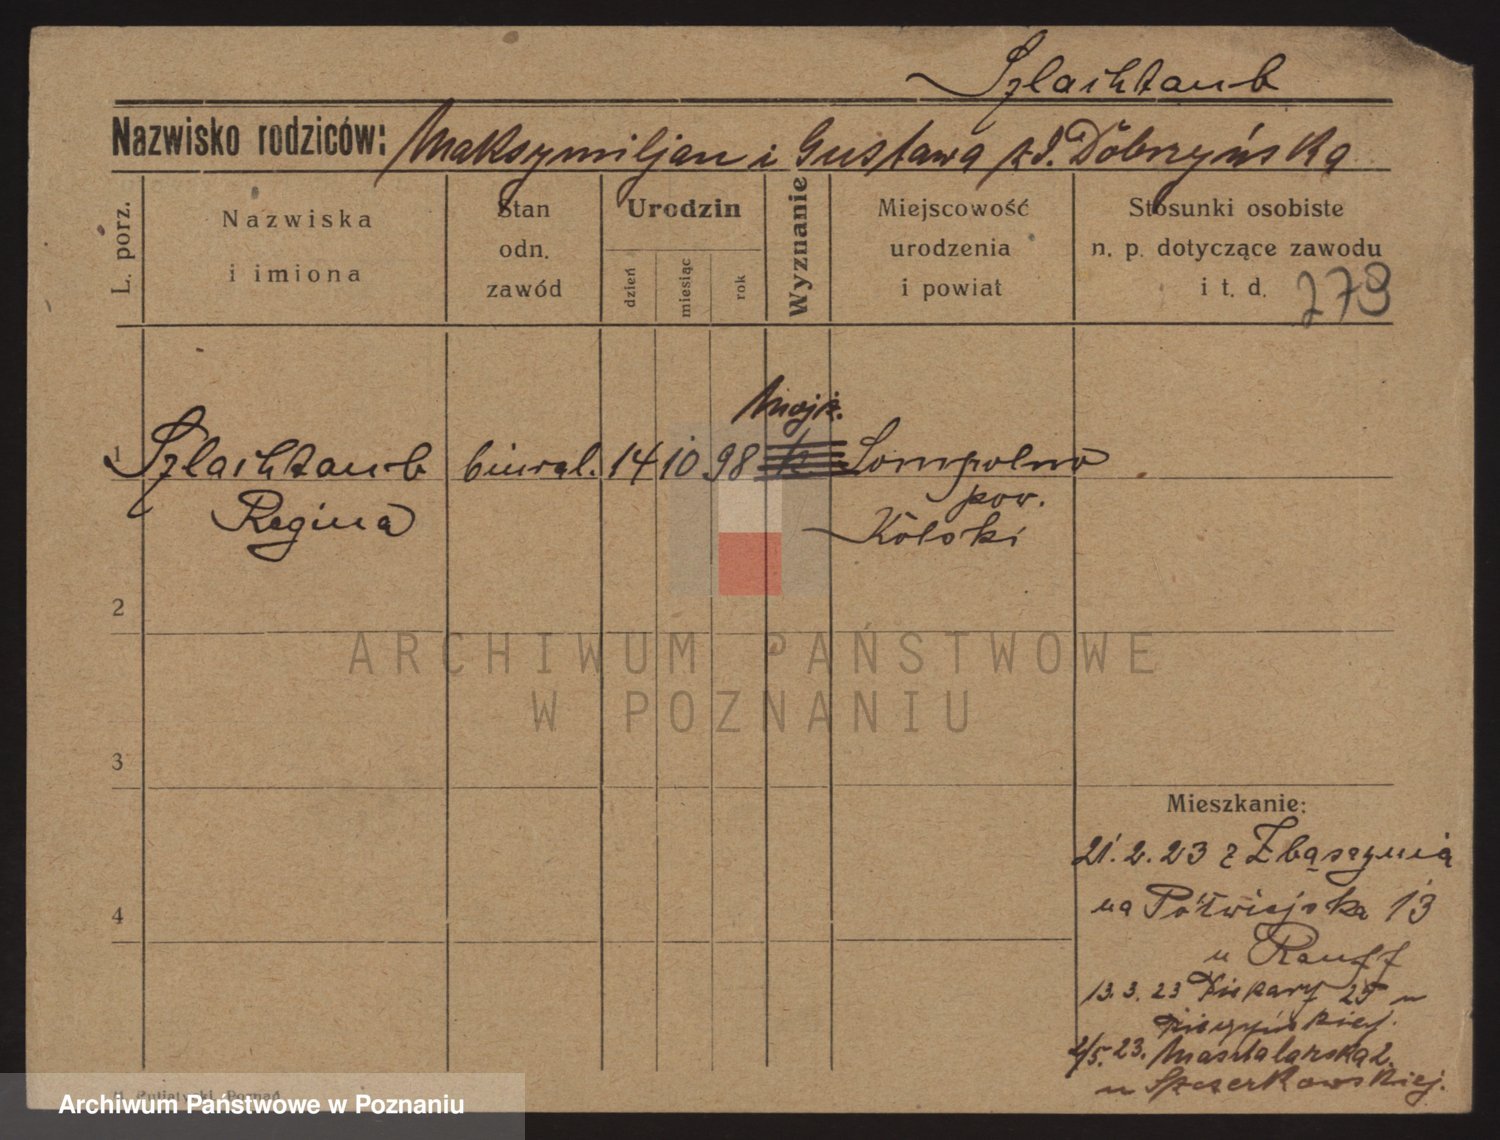 Szlachtaub
Nazwisko rodziców: Maksymiljan i Gustawa z d. Dobrzyńska
L. porz.
Nazwiska
i imiona
Stan
odn.
zawód
Urodzin
dzień
miesiąc
rok
Wyznanie
Miejscowość
urodzenia
i powiat
Stosunki osobiste
n. p. dotyczące zawodu
i t. d.
273
mojż.
1 Szlachtaub biural. 14 10 98 Sompolno
Regina
pow.
Kolski
2
3
4
ARCHIWUM PAŃSTWOWE
W POZNANIU
Mieszkanie:
21.2.23 z Zbąszynia
na Półwiejska 13
u Rauff
13.3.23 Piekary 25 u
2/5.23. Masztalarska 2.
u Szczerkowskiej.
Archiwum Państwowe w Poznaniu